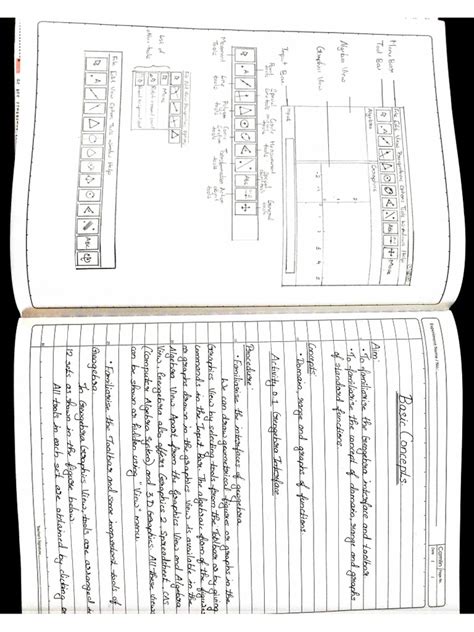 Basic Concepts
Aim:
• To familiarise the Geogebra interface and toolbar.
• To familiarise the concept of domain, range and graphs
of standard functions
Concepts:
• Domain, range and graphs of functions.
Activity 0.1 Geogebra Interface
Procedure:
• Familiarise the interfaces of geogebra
We can draw geometrical figures or graphs in the
Graphics View by selecting tools from the Toolbar or by giving
commands in the Input Bar. The algebraic form of the figures
or graphs drawn in the graphics View is available in the
Algebra View. Apart from the Graphics View and Algebra
View, Geogebra also offers Graphics 2, Spreadsheet, CAS
(Computer Algebra System) and 3D Graphics. All these views
can be shown or hidden using "View" menu
• Familiarise the Toolbar and some important tools of
Geogebra
In Geogebra Graphics View, tools are arranged in
12 sets as shown in the figure below
All tools in each set are obtained by clicking on
Menu Bar
Tool Bar
Algebra View
Graphics View
Input Bar
File Edit View
Algebra
Graphics
Move
Movement
tools
Line
tools
Point
tools
Polygon
tools
Conic
tools
Measurement
tools
Transformation
tools
General
tools
List of
other tools
File Edit View Options Tools Window Help
Move